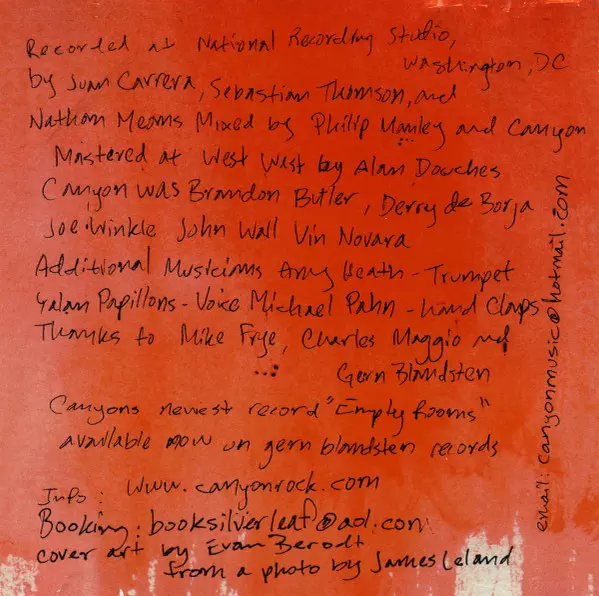 Recorded at National Recording Studio,
Washington, DC
by Juan Carrera, Sebastian Thomson, and
Nathan Means Mixed by Philip Manley and Canyon
Mastered at West West by Alan Douches
Canyon was Brandon Butler, Derry de Borja
Joe Winkle John Wall Vin Novara
Additional Musicians Amy Heath - Trumpet
Yalan Papillons - Voice Michael Pahn - hand Claps
Thanks to Mike Frye, Charles Maggio and
Gern Blandsten
Canyons newest record "Empty Rooms"
available now on gern blandsten records
Info: www.canyonrock.com
Booking: booksilverleaf@aol.com
cover art by Evan Berodt
from a photo by James Leland
email: canyonmusic@hotmail.com